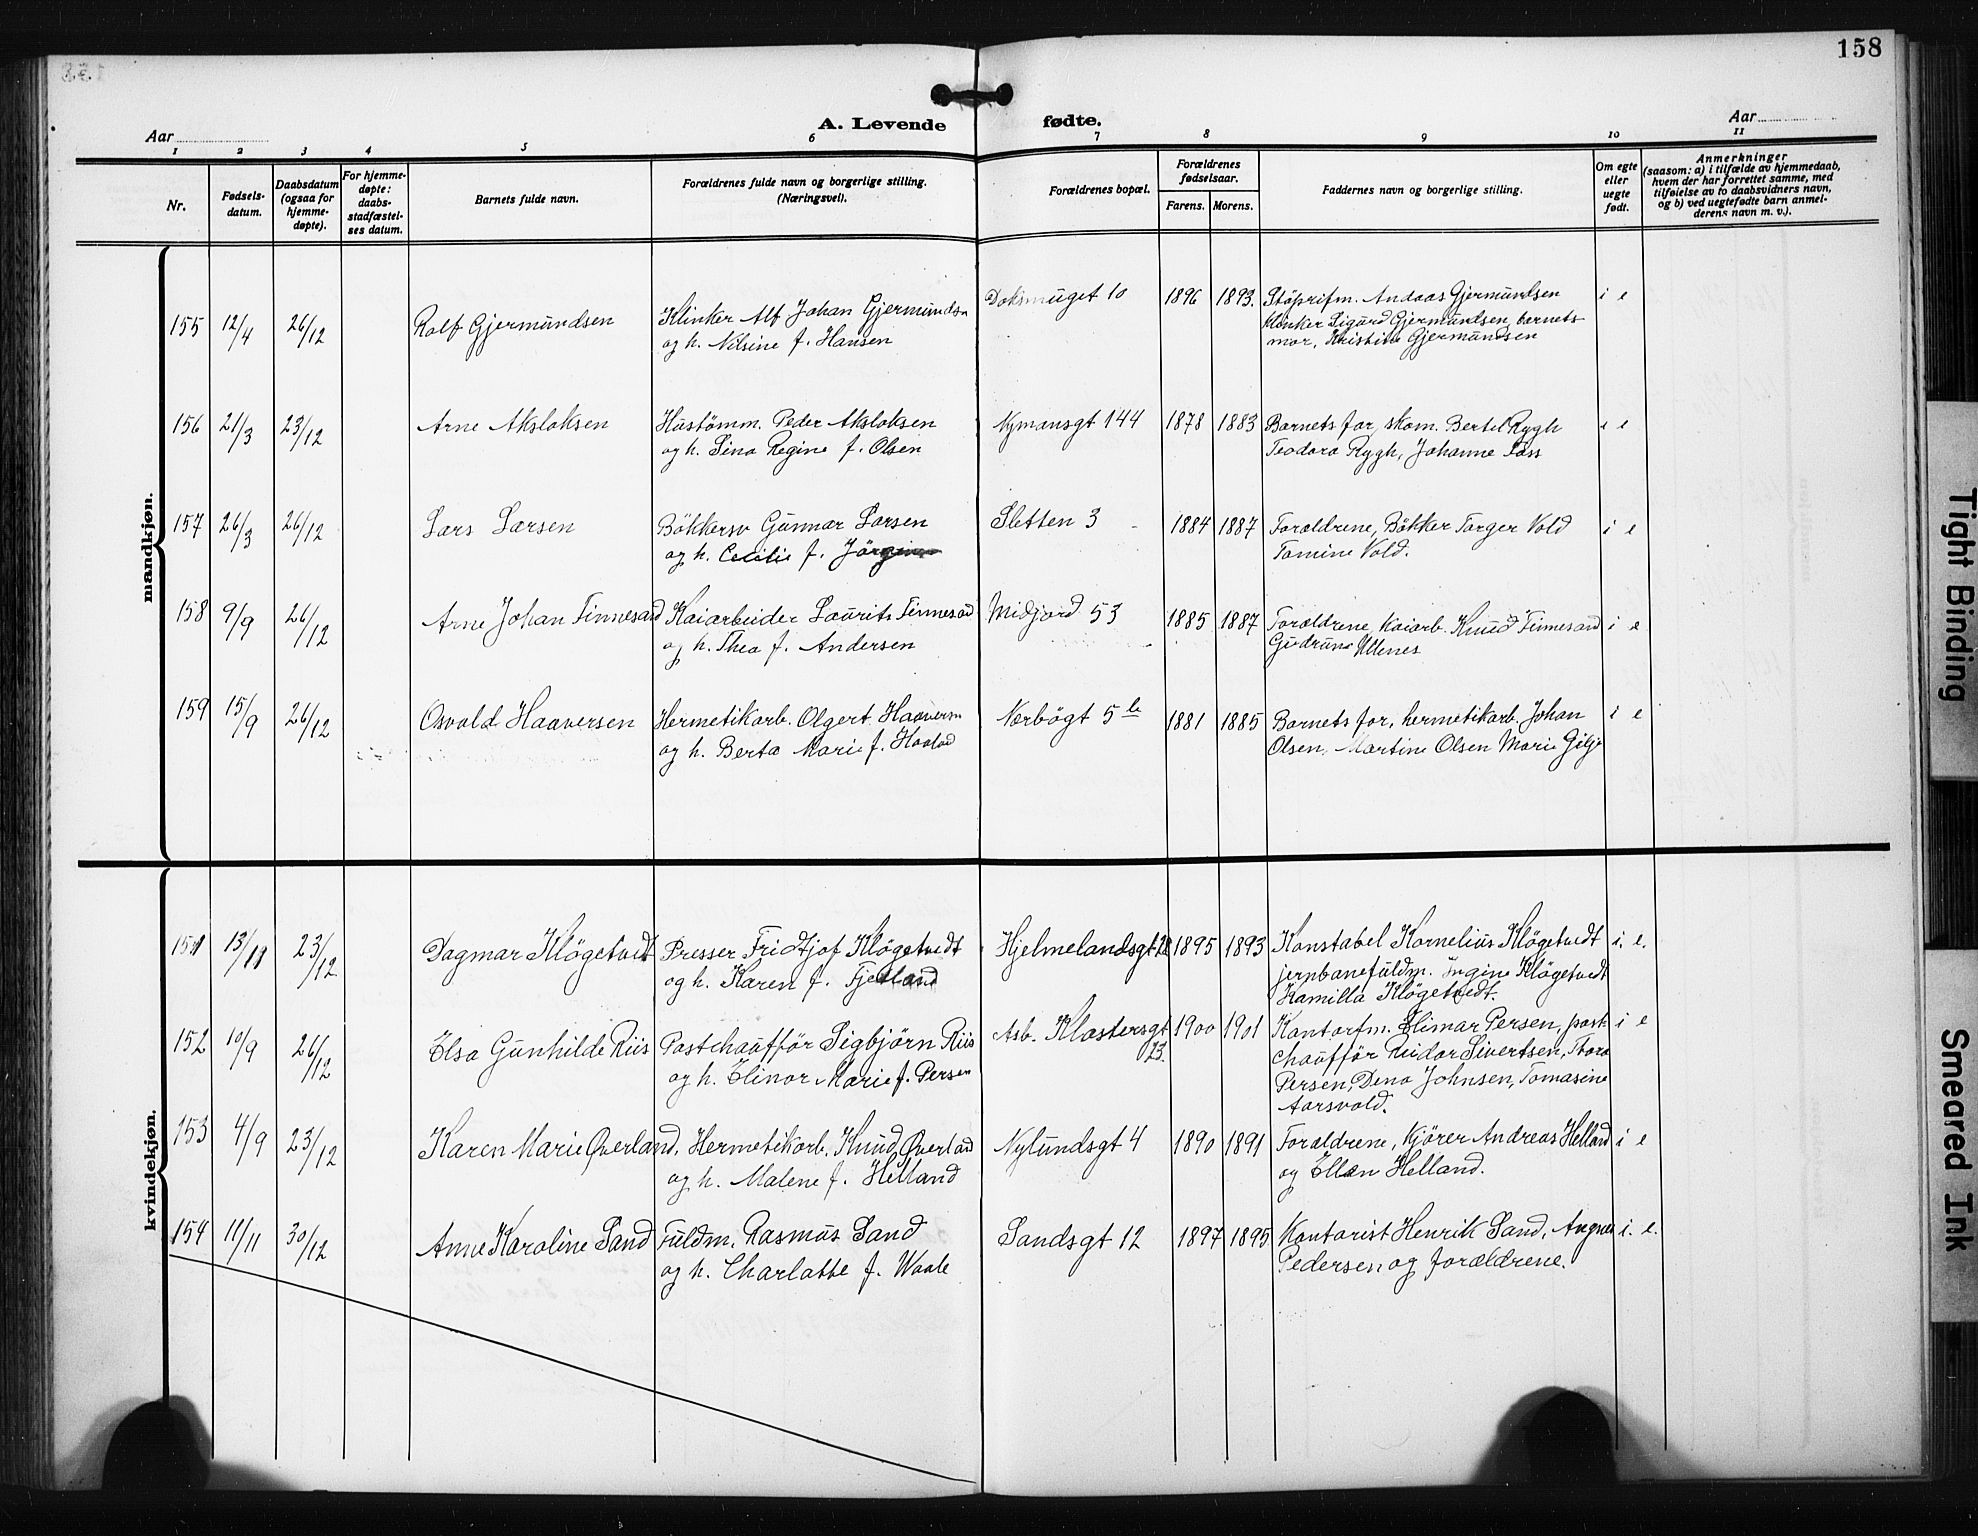 158
A. Levende fødte.
Aar
Aar
1 2 3 4 5 6 7 8 9 10 11
Nr.
Fødsels-
datum.
Daabsdatum
(ogsaa for
hjemme-
døpte).
For hjemme-
døpte:
daabs-
stadfæstel-
ses datum.
Barnets fulde navn.
Forældrenes fulde navn og borgerlige stilling.
(Næringsvei).
Forældrenes bopæl.
Forældrenes
fødselsaar.
Farens. Morens.
Faddernes navn og borgerlige stilling.
Om egte
eller
uegte
født.
Anmerkninger
(saasom: a) i tilfælde av hjemmedaab,
hvem der har forrettet samme, med
tilføielse av to daabsvidners navn,
og b) ved uegtefødte barn anmel-
derens navn m. v.).
mandkjøn.
155 12/4 26/12 Rolf Gjermundsen
Klinker Alf Johan Gjermundsn
og h. Nilsine f. Hansen
Doksmuget 10 1896 1893.
Støprifm. Andaas Gjermundsen
Klinker Sigurd Gjermundsen, barnets
mor, Kristine Gjermundsen
i e
156 21/3 23/12 Arne Aksloksen
Hustømm. Peder Aksloksen
og h. Lina Regine f. Olsen
Nymansgt 144 1878 1883
Barnets far, skom. Bertel Rygh
Teodora Rygh, Johanne
i e
157 26/3 26/12 Lars Larsen
Bökkersv Gunnar Larsen
og h. Cecilie f.
Sletten 3 1884 1887
Forældrene, Bökker Targer Vold
Tomine Vold.
i e
158 9/9 26/12 Arne Johan Finnesand
Kaiarbeider Laurits Finnesand
og h. Thea f. Andersen
Midjord 53 1885 1887
Forældrene, Kaiarb. Knud Finnesand
Gudrun Ullenes
i e
159 15/9 26/12 Osvald Haaversen
Hermetikarb. Olgert Haaversn
og h. Berta Marie f. Haaland
Nærbögt 5 b 1881 1885
Barnets far, hermetikarb. Johan
Olsen, Martine Olsen Marie Gilje
i e
kvindekjøn.
151 13/11 23/12 Dagmar Kløgetvedt
Presser Fridtjof Kløgetvedt
og h. Karen f. Fjetland
Hjelmelandsgt 28 1895 1893
Konstabel Kornelius Kløgetvedt
jernbanefuldm. Ingine Kløgetvedt
Kamilla Kløgetvedt.
i. e.
152 10/9 26/12 Elsa Gunhilde Riis
Postchauffør Sigbjörn Riis
og h. Elinor Marie f. Persen
Asb. Klostersgt
23. 1900 1901
Kontorfm. Elimar Persen, post
chauffør Reidar Sivertsen, Thora
Persen, Dena Johnsen, Tomasine
Aarsvold.
i e
153 4/9 23/12 Karen Marie Øverland.
Hermetikarb. Knud Øverland
og h. Malene f. Helland
Nylundsgt 4 1890 1891
Forældrene, Kjører Andreas Helland
og Ellen Helland.
i e
154 11/11 30/12 Anne Karoline Sand
Fuldm. Rasmus Sand
og h. Charlotte f. Waale
Sandsgt 12 1897 1895
Kontorist Henrik Sand, Angnes
Pedersen og forældrene.
i. e.
Tight Binding
Smeared Ink